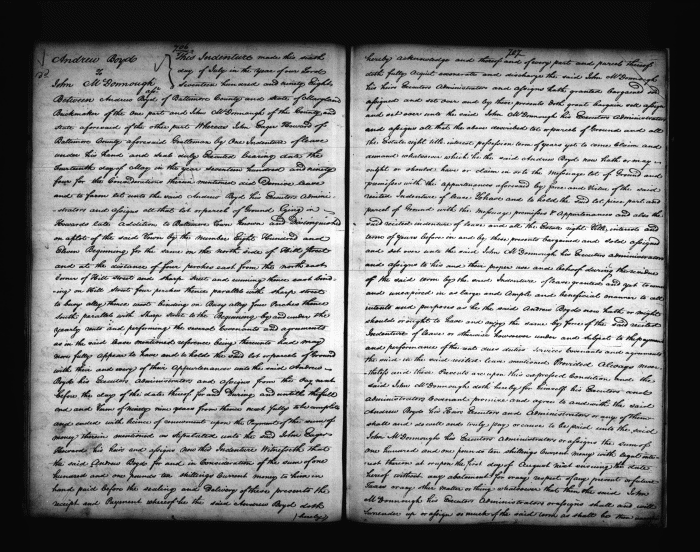 706
Andrew Boyd
to
John McDonnough
This Indenture made this sixth
day of July in the year of our Lord
Seventeen hundred and ninety Eight
Between Andrew Boyd of Baltimore County and State of Maryland
Brickmaker of the one part and John McDonnough of the County and
State aforesaid of the other part Whereas John Eager Howard of
Baltimore County aforesaid Gentleman by One Indenture of lease
under his hand and Seal duly Executed bearing date the
fourteenth day of May in the year seventeen hundred and ninety
four for the Considerations therein mentioned did Demise lease
and to farm let unto the said Andrew Boyd his Executors Admini-
strators and assigns all that lot or parcel of Ground Lying in
Howards late Addition to Baltimore Town Known and Distinguished
on a plot of the said Town by the Number Eight Hundred and
Eleven Beginning for the same on the north side of Hill Street
and at the distance of four perches each from the north east
Corner of Hill Street and Sharp Street and running thence east bind-
ing on Hill Street four perches thence parallel with Sharp Street
to Busy alley thence west binding on Busy alley four Perches thence
South parallel with Sharp Street to the Beginning by and under the
yearly rent and performing the several Covenants and agreements
as in the said lease mentioned reference being thereunto had may
more fully appear to have and to hold the said lot or parcel of Ground
with their and every of their Appurtenances unto the said Andrew
Boyd his Executors Administrators and assigns from the day next
before the day of the date thereof for and During and until the full
end and term of ninety nine years from thence next fully to be complete
and ended with thence of renewment upon the Payment of the sum of
money therein mentioned or stipulated unto the said John Eager
Howard his heirs and assigns Now this Indenture Witnesseth that
the said Andrew Boyd for and in Consideration of the sum of one
hundred and one pounds ten shillings Current money to him in
hand paid before the sealing and Delivery of these presents the
receipt and Payment whereof he the said Andrew Boyd doth
hereby
707
hereby acknowledge and thereof and of every part and parcel thereof
doth fully acquit exonerate and discharge the said John McDonnough
his heirs Executors Administrators and assigns hath granted bargained and
assigned and set over and by these presents doth grant bargain sell assign
and set over unto the said John McDonnough his Executors Administrators
and assigns all that the above described lot or parcel of Ground and all
the Estate right title interest possession term of years yet to come claim and
demand whatsoever which he the said Andrew Boyd now hath or may
might or should have or claim in or to the Messuage lot of Ground and
premises with the appurtenances aforesaid by force and Virtue of the said
recited Indenture of lease To have and to hold the said lot piece part and
parcel of Ground with the Messuage premises & Appurtenances and also the
said recited indenture of lease and all the Estate right title interests and
term of years before in and by these presents bargained and sold assigned
and set over unto the said John McDonnough his Executors administrators
and assigns to his and their proper use and behoof during the residue
of the said term by the said Indenture of lease granted and yet to come
and unexpired in as large and Ample and beneficial manner to all
intents and purposes as he the said Andrew Boyd now hath or might
should or ought to have and enjoy the same by force of the said recited
Indenture of lease or otherwise however under and subject to the payment
and performance of the rent and duties Services Covenants and agreements
the said in the said recited lease mentioned Provided Always never-
theless and these Presents are upon this express Condition and the
said John McDonnough doth hereby for himself his Executors and
administrators Covenant promise and agree to and with the said
Andrew Boyd his heirs Executors and Administrators or any of them
shall and do well and truly pay or cause to be paid unto the said
John McDonnough his Executors administrators or assigns the sum of
one hundred and one pounds ten shillings Current money with legal inter-
est thereon at or upon the first day of August next ensuing the date
hereof without any abatement for any respect of any present or future
Taxes or any other matter or thing whatsoever that then the said John
McDonnough his Executors Administrators or assigns shall and will
surrender up or assign so much of the said term as shall be then